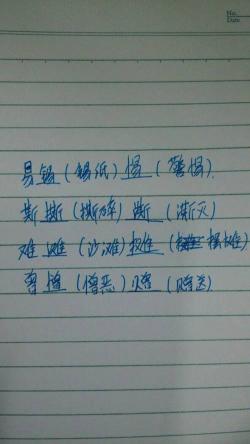 No.
Date
易 锡（锡纸）惕（警惕）.
斯 撕（撕碎）澌（澌灭）
难 滩（沙滩）摊（摆摊）
曾 憎（憎恶）赠（赠送）